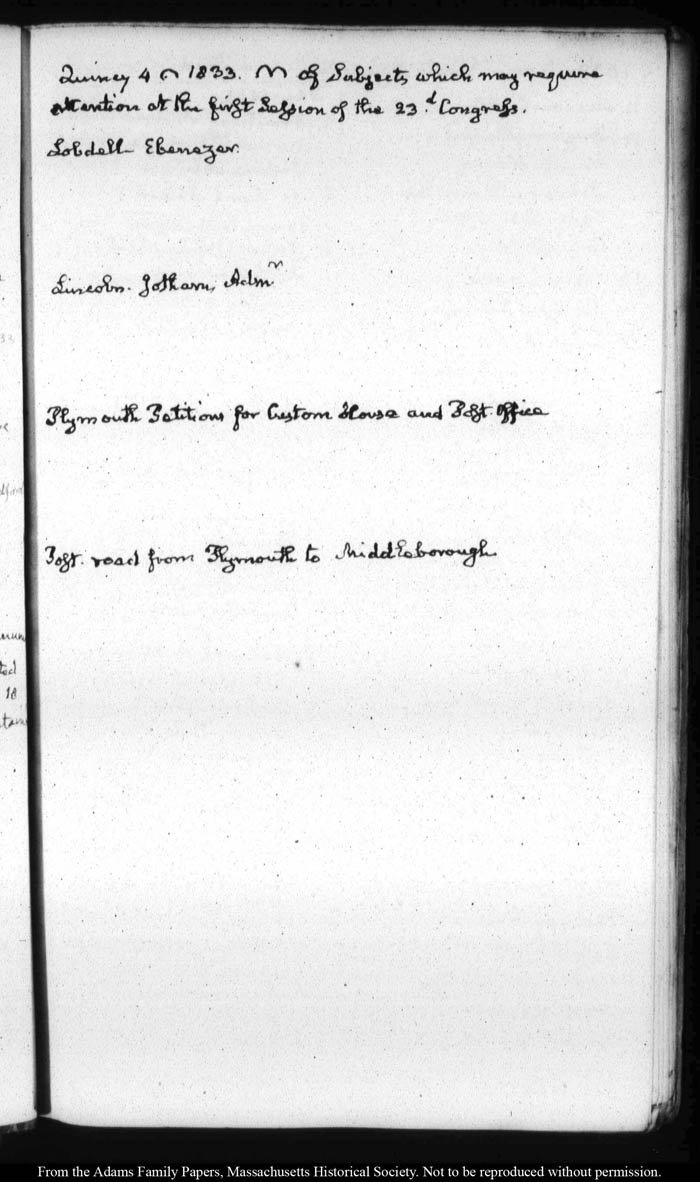 Quincy 4 1833. of Subjects which may require
attention at the first Session of the 23.d Congress.
Lobdell Ebenezer.
Lincoln. Jotham, Admr
Plymouth Petitions for Custom House and Post Office
Post. road from Plymouth to Middleborough
ted
18
From the Adams Family Papers, Massachusetts Historical Society. Not to be reproduced without permission.